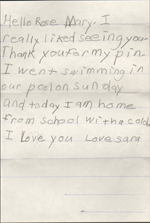 Hello Rose Mary. I
really liked seeing you.
Thank you for my pin.
I went swimming in
our pool on sunday
and today I am home
from school with a cold.
I Love you Love sara